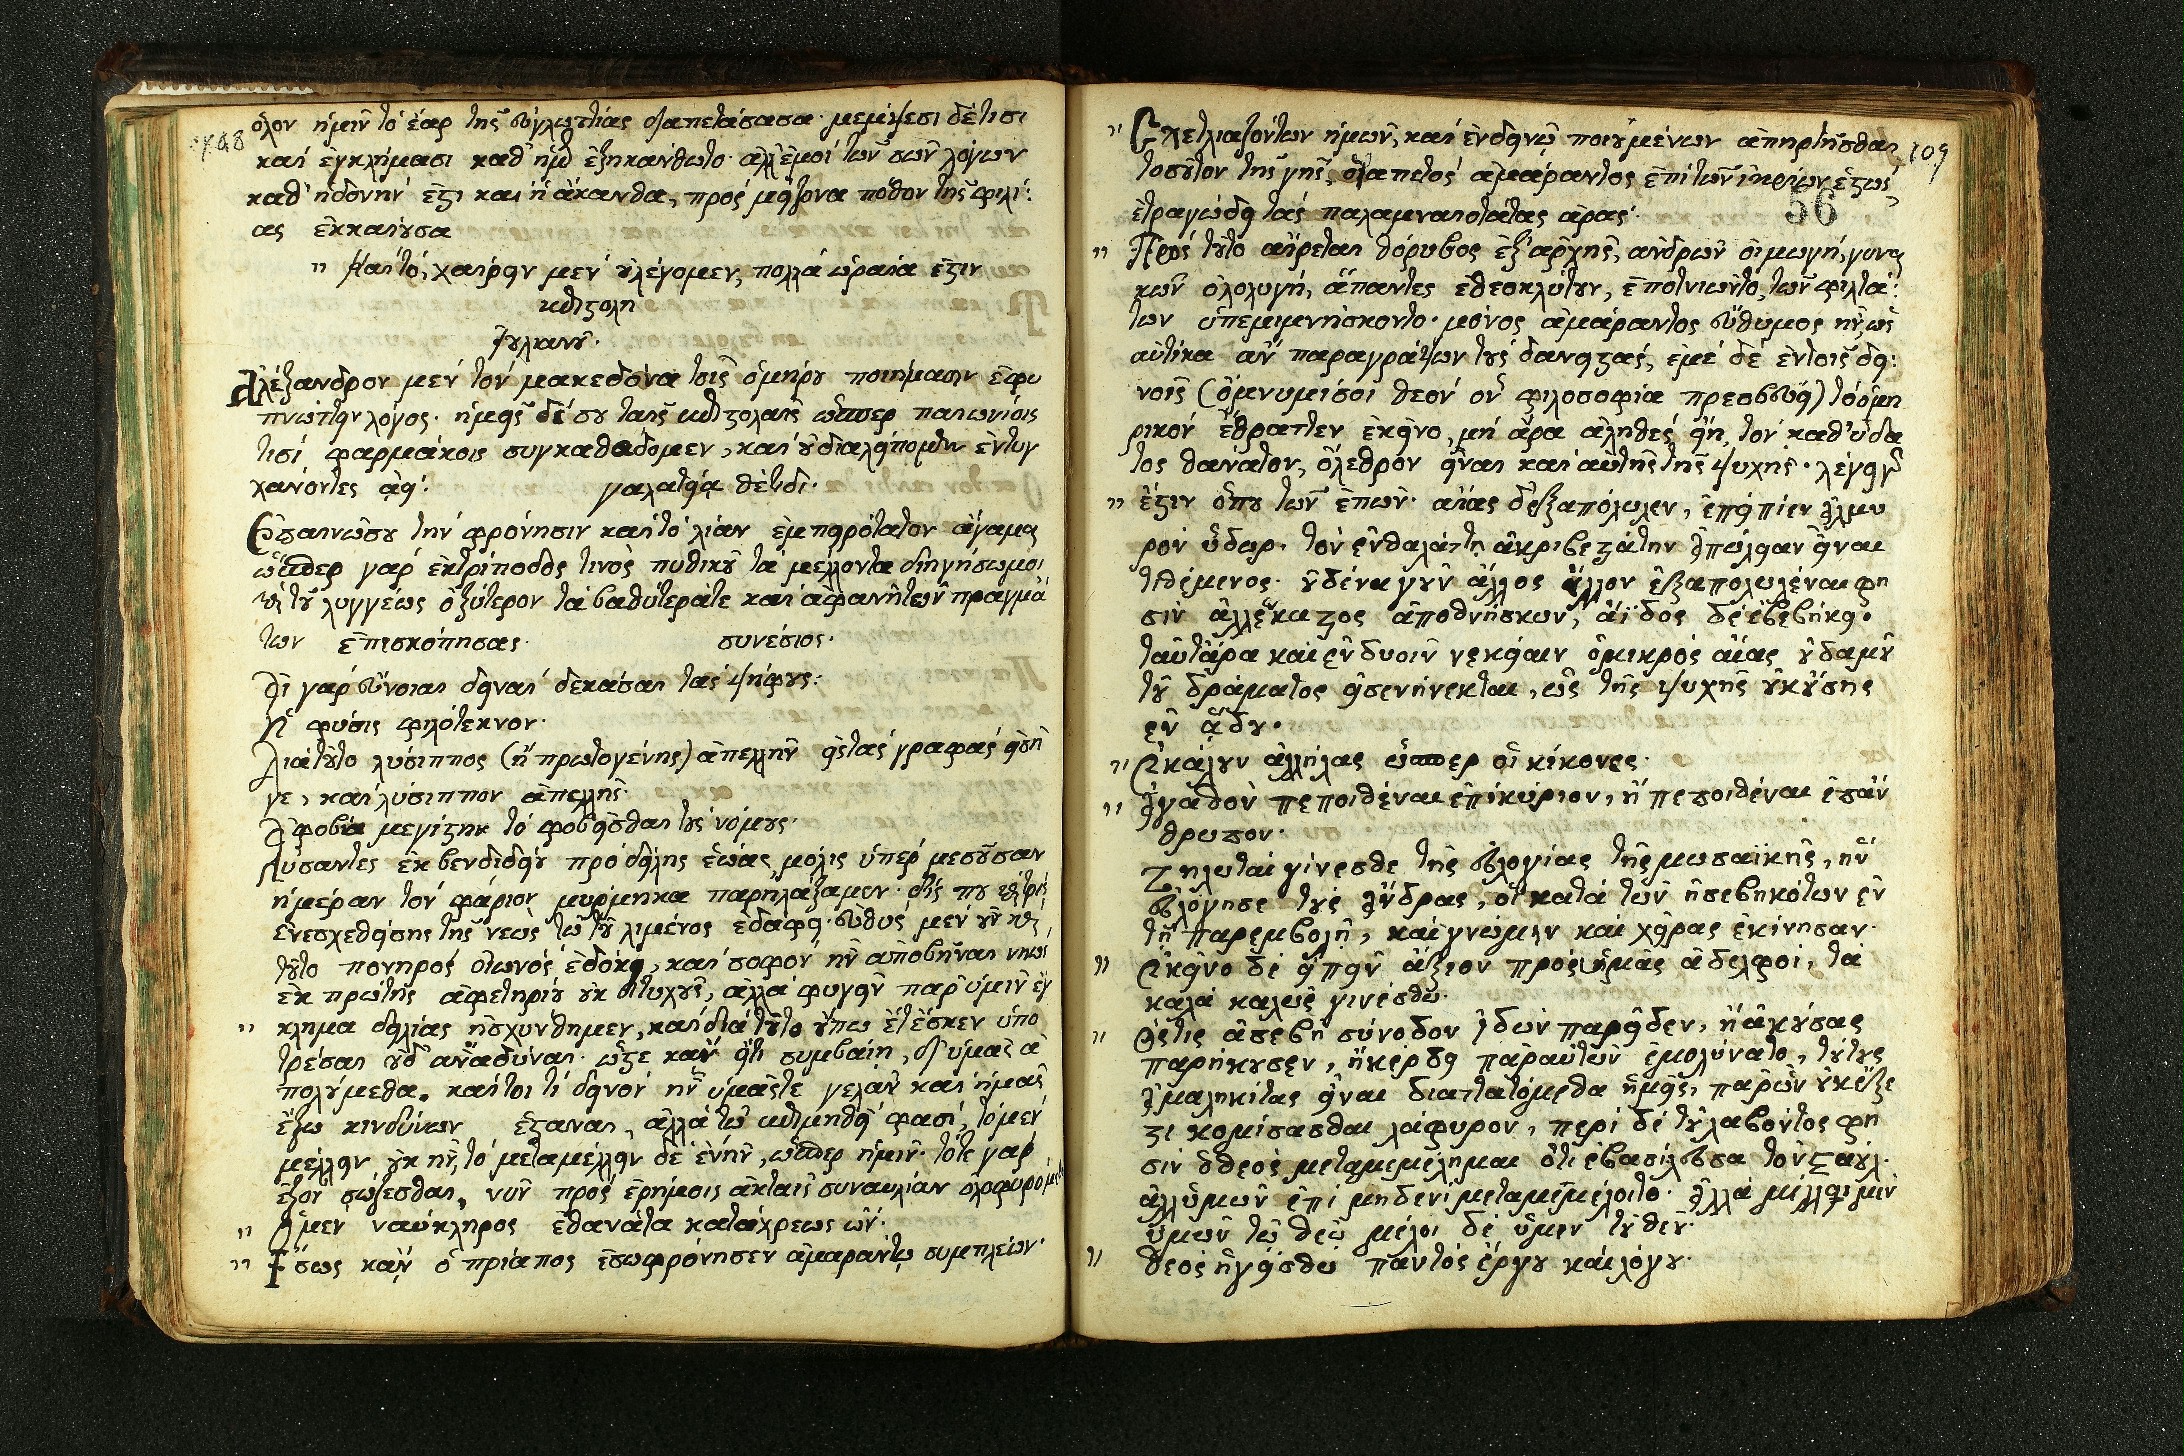 108
ὅλον ἡμῖν τὸ ἔαρ τῆς εὐγλωττίας διαπετάσασα· μέμψεσι δέ τισι
καὶ ἐγκλήμασι καθ' ἡμῶν ἐξηκανθώτο· ἀλλ' ἐμοὶ τῶν σῶν λόγων
καθ' ἡδονὴν ἐστι καὶ ἡ ἄκανθα, πρὸς μείζονα πόθον τῆς φιλί:
ας ἐκκαίουσα
" Καὶ τὸ, χαίρειν μὲν λέγομεν, πολλὰ ὡραῖά ἐστιν
ἐπιστολὴ
Ἰουλιανοῦ·
Ἀλέξανδρον μὲν τὸν μακεδόνα τοῖς ὁμήρου ποιήμασιν ἐφυ
πνώττειν λόγος· ἡμεῖς δέ σου ταῖς ἐπιστολαῖς ὥσπερ παιωνίοις
τισὶ φαρμάκοις συγκαθεύδομεν, καὶ οὐ διαλείπομεν ἐντυγ
χάνοντες ἀεί: γαλατεία θέτιδι·
Ἐπαινῶ σου τὴν φρόνησιν καὶ τὸ λίαν ἐμπειρότατον ἄγαμαι
ὥσπερ γὰρ ἐκ τρίποδος τινὸς πυθικοῦ τὰ μέλλοντα διηγήσω μοι
καὶ τοῦ λυγγέως ὀξύτερον τὰ βαθύτερά τε καὶ ἀφανῆ τῶν πραγμά
των ἐπισκόπησας· συνέσιος·
Αἱ γὰρ εὔνοιαι δειναὶ δεκάσαι τὰς ψήφους:
Ἡ φύσις φιλότεκνον·
Διὰ τοῦτο λύσιππος (ἢ πρωτογένης) ἀπελλῆν εἰς τὰς γραφὰς εἰσῆ
γε, καὶ λύσιππον ἀπελλῆς·
Ἀφοβία μεγίστη τὸ φοβεῖσθαι τοὺς νόμους·
Λύσαντες ἐκ βενδιδείου πρὸ δείλης ἑώας μόλις ὑπὲρ μεσοῦσαν
ἡμέραν τὸν φάριον μύρμηκα παρηλάξαμεν· δίς που καὶ τρὶς
ἐνεσχεθείσης τῆς νεὼς τῷ τοῦ λιμένος ἐδάφει· εὐθὺς μὲν οὖν καὶ
τοῦτο πονηρὸς οἰωνὸς ἐδόκει, καὶ σοφὸν ἦν ἀποβῆναι νηὸς
ἐκ πρώτης ἀφετηρίου οὐκ εὐτυχοῦς, ἀλλὰ φυγεῖν παρ' ὑμῖν ἔγ
" κλημα δειλίας ᾐσχύνθημεν, καὶ διὰ τοῦτο οὔπω ἔτ' ἔσκεν ὑπο
τρέσαι οὐδ' ἀναδῦναι· ὥστε κἂν εἴ τι συμβαίη, δι' ὑμᾶς ἀ
πολούμεθα. καίτοι τί δεινὸν ἦν ὑμᾶς τε γελᾶν καὶ ἡμᾶς
ἔξω κινδύνων ἑστάναι, ἀλλὰ τῷ ἐπιμηθεῖ φασί, τὸ μὲν
μέλλειν οὐκ ἦν, τὸ μεταμέλλειν δὲ ἐνῆν, ὥσπερ ἡμῖν· τότε γὰρ
ἐξὸν σώζεσθαι, νῦν πρὸς ἐρήμοις ἀκταῖς συναυλίαν ὀλοφυρόμεθα
" Ὁ μὲν ναύκληρος ἐθανάτα κατάχρεως ὤν·
" Ἴσως κἂν ὁ πρίαπος ἐσωφρόνησεν ἀμαράντῳ συμπλέων·
109
56
" Σχετλιαζόντων ἡμῶν, καὶ ἐν δεινῷ ποιουμένων ἀπηρτῆσθαι
τοσοῦτον τῆς γῆς, διαπετὸς ἀμάραντος ἐπὶ τῶν ἰκρίων ἑστὼς
ἐτραγώδει τὰς παλαμναιοτάτας ἀράς·
" Πρὸς τοῦτο αἴρεται θόρυβος ἐξ ἀρχῆς, ἀνδρῶν οἰμωγή, γυναι
κῶν ὀλολυγή, ἅπαντες ἐθεοκλύτουν, ἐποτνιῶντο, τῶν φιλτά:
των ὑπεμιμνήσκοντο· μόνος ἀμάραντος εὔθυμος ἦν ὡς
αὐτίκα ἂν παραγράψων τοὺς δανειστάς, ἐμὲ δὲ ἐν τοῖς δει:
νοῖς (ὄμνυμί σοι θεὸν ὃν φιλοσοφία πρεσβεύει) τὸ ὁμη
ρικὸν ἔθραττεν ἐκεῖνο, μὴ ἄρα ἀληθὲς εἴη τὸν καθ' ὕδα
τος θάνατον, ὄλεθρον εἶναι καὶ αὐτῆς τῆς ψυχῆς· λέγει γὰρ
" ἔστιν ὅπου τῶν ἐπῶν· αἴας δ' ἐξαπόλωλεν, ἐπεὶ πίεν ἁλμυ
ρὸν ὕδωρ· τὸν ἐν θαλάττῃ ἀκριβεστάτην ἀπώλειαν εἶναι
τιθέμενος· οὐδένα γοῦν ἄλλος ἄλλον ἐξαπολωλέναι φη
σίν ἀλλ' ἕκαστος ἀποθνήσκων, ἄϊδος δὲ ἐβεβήκει.
ταῦτ' ἄρα καὶ ἐν δυοῖν νεκύαιν ὁ μικρὸς αἴας οὐδαμοῦ
τοῦ δράματος εἰσενήνεκται, ὡς τῆς ψυχῆς οὐκ οὔσης
ἐν ᾅδου.
" Ἐκάλουν ἀλλήλας ὥσπερ οἱ κίκονες·
" Ἀγαθὸν πεποιθέναι ἐπὶ κύριον, ἢ πεποιθέναι ἐπ' ἄν
θρωπον·
Ζηλωταὶ γίνεσθε τῆς εὐλογίας τῆς μωσαϊκῆς, ἣν
εὐλόγησε τοὺς ἄνδρας, οἳ κατὰ τῶν ἠσεβηκότων ἐν
τῇ παρεμβολῇ, καὶ γνώμην καὶ χεῖρας ἐκίνησαν·
" Ἐκεῖνο δὲ εἰπεῖν ἄξιον πρὸς ἡμᾶς ἀδελφοί, τὰ
καλὰ καλῶς γινέσθω·
" Ὅστις ἀσεβῆ σύνοδον ἰδὼν παρεῖδεν, ἢ ἀκούσας
παρήκουσεν, ἢ κέρδει παρ' αὐτῶν ἐμολύνατο, τούτους
ἀμαληκίτας εἶναι διαταττόμεθα ἡμεῖς, παρ' ὧν οὐκ ἔξε
στι κομίσασθαι λάφυρον, περὶ δὲ τοῦ λαβόντος φη
σὶν ὁ θεὸς μεταμεμέλημαι ὅτι ἐβασίλευσα τὸν Σαούλ·
ἀλλ' ὑμῶν ἐπὶ μηδενὶ μεταμεμέλοιτο· ἀλλὰ μέλλοι μὲν
ὑμῶν τῷ θεῷ μέλοι δὲ ὑμῖν τοῦ θεοῦ·
" Θεὸς ἡγείσθω παντὸς ἔργου καὶ λόγου·